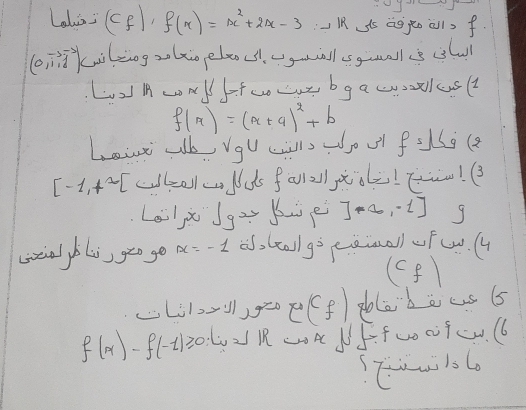 f دالة معرفة على IR ب: f(x) = x² + 2x - 3 ، (Cf) تمثيلها
البياني في المستوي المنسوب إلى معلم متعامد ومتجانس (0, i, j)
1) عين العددين a و b بحيث من أجل كل x من IR لدينا:
f(x) = (x+a)² + b
2) فكك f الى مركب دالتين u و v يطلب تعيينهما
3) إستنتج إتجاه تغير الدالة f على كل من المجالين [-1,+∞[
و ]-∞,-1] ثم شكل جدول تغيراتها.
4) بين أن المستقيم ذو المعادلة x = -1 هو محور تناظر لمنحنى
(Cf)
5) عين نقط تقاطع (Cf) مع محور الاحداثيات.
6) بين أنه من أجل كل x من IR لدينا: f(x) - f(-1) ≥ 0
ماذا تستنتج ؟